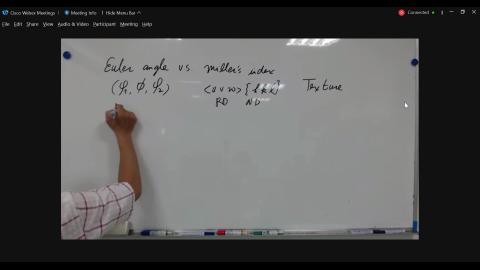 Cisco Webex Meetings
Meeting Info
Hide Menu Bar
Connected
File Edit Share View Audio & Video Participant Meeting Help
Euler angle vs miller's index
(φ₁, ϕ, φ₂) <u v w> {h k l} Texture
RD ND